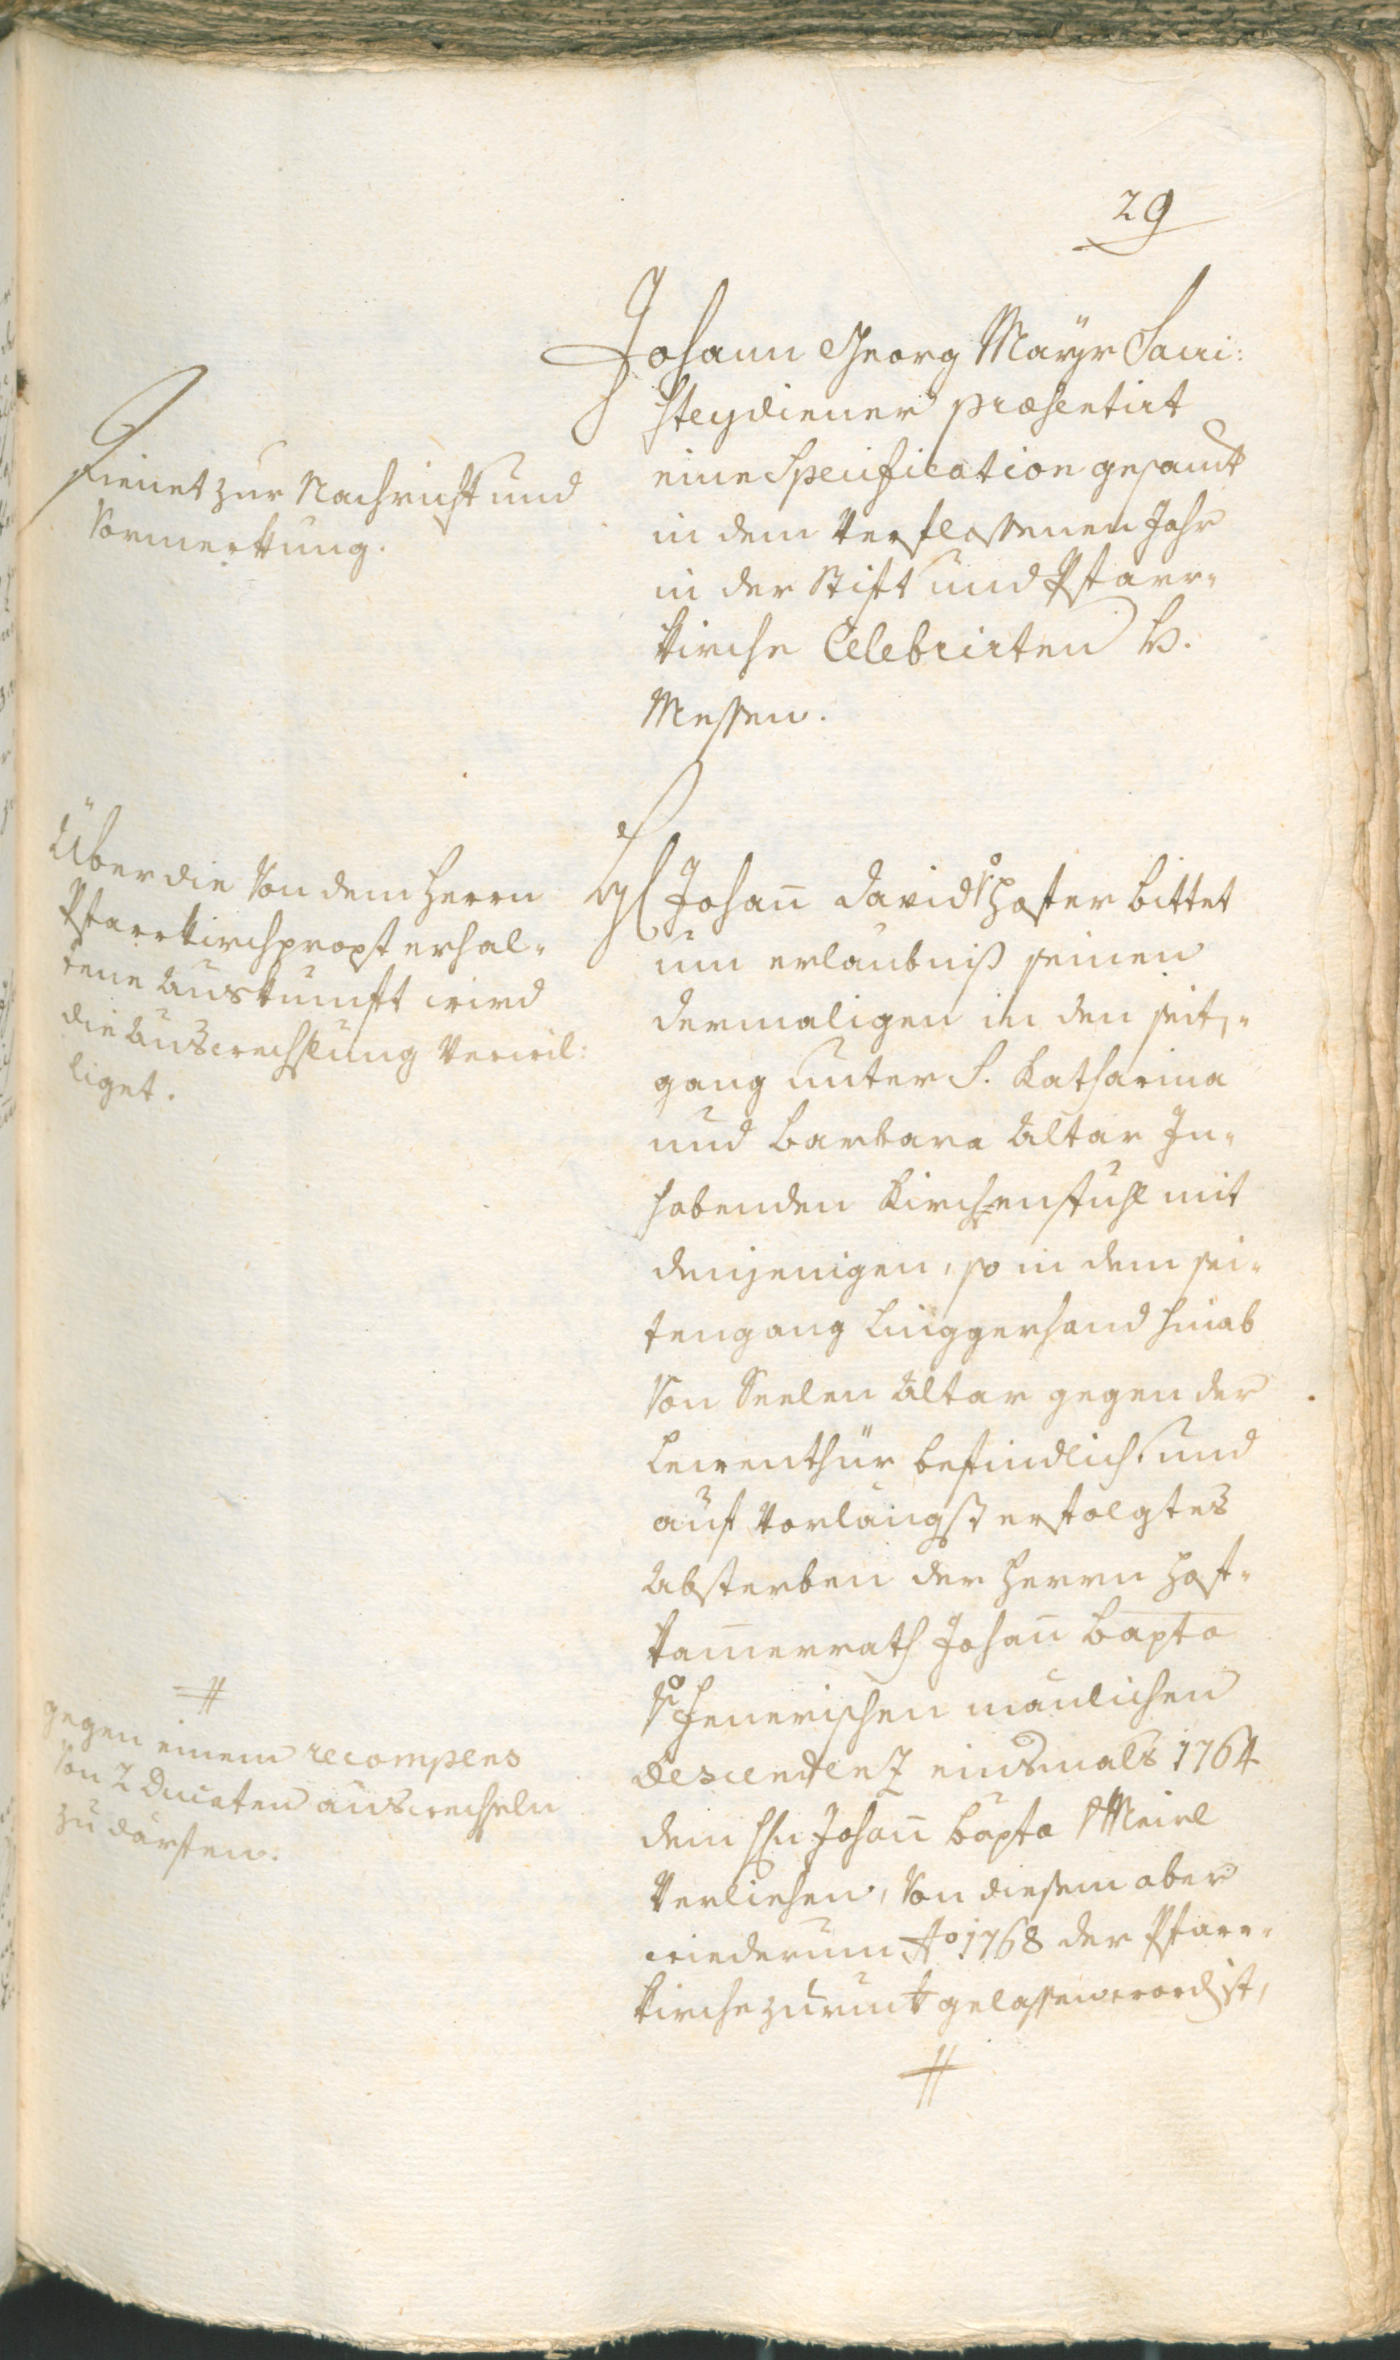 29
Johann Georg Maÿr Sacri:
steydiener præsentirt
eine Specification gesamt
in dem verflossenen Jahr
in der Stift und Pfarr-
kirche Celebrirten H.
Messen.
Dienet zur Nachricht und
Vormerkung.
Johan̄ David v Hofer bittet
um erlaubniß seinen
dermaligen in den seit-
gang unter S. Katharina
und Barbara Altar In-
habenden Kirchenstuhl mit
denjenigen, so in dem sei-
tengang linggerhand hinab
von Seelen Altar gegen der
Leirenthür befindlich, und
auf vorlängst erfolgtes
Absterben der Herrn Hof-
kam̄errath Johan̄ Bapta
männlichen
Descendenz einsmals 1764
dem H̄n Johan̄ Bapta Meirl
verliehen, von diesem aber
wiederum Ao 1768 der Pfarr-
kirche zuruk gelassen word. ist,
#
Über die von dem Herrn
Pfarrkirchpropst erhal-
tene Auskunft wird
die Auswechslung verwil:
liget.
#
gegen einem recompens
von 2 Ducaten auswechseln
zu därfen.